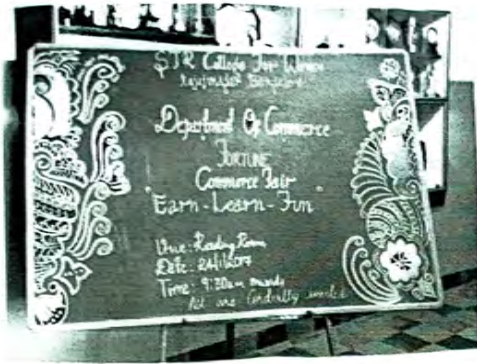 SJR College For Women
Rajajinagar Bangalore
Department Of Commerce
FORTUNE
Commerce Fair
"Earn-Learn-Fun"
Venue: Reading Room
Date: 24/1/2017
Time: 9:30am onwards
All are Cordially invited